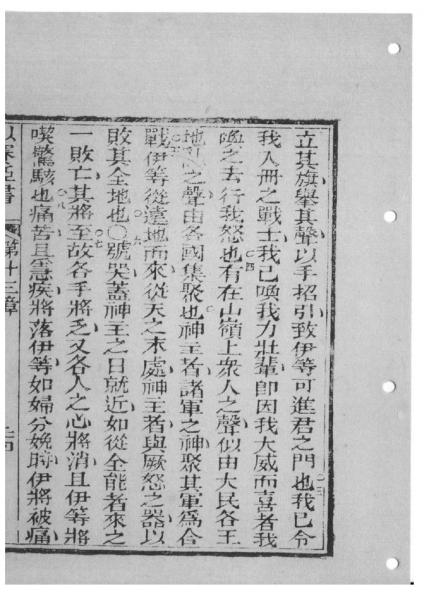 立其旗舉其聲以手招引致伊等可進君之門也我已令
我入冊之戰士我已喚我力壯輩卽因我大威而喜者我
喚之去行我怒也有在山嶺上衆人之聲似由大民各王
地之聲由各國集聚也神主者諸軍之神聚其軍爲合
戰伊等從遠地而來從天之末處神主者與厥怒之器以
敗其全地也○號哭蓋神主之日就近如從全能者來之
一敗亡其將至故各手將乏又各人之心將消且伊等將
喫驚駭也痛苦且急疾將落伊等如婦分娩時伊將被痛
以賽亞書 第十三章